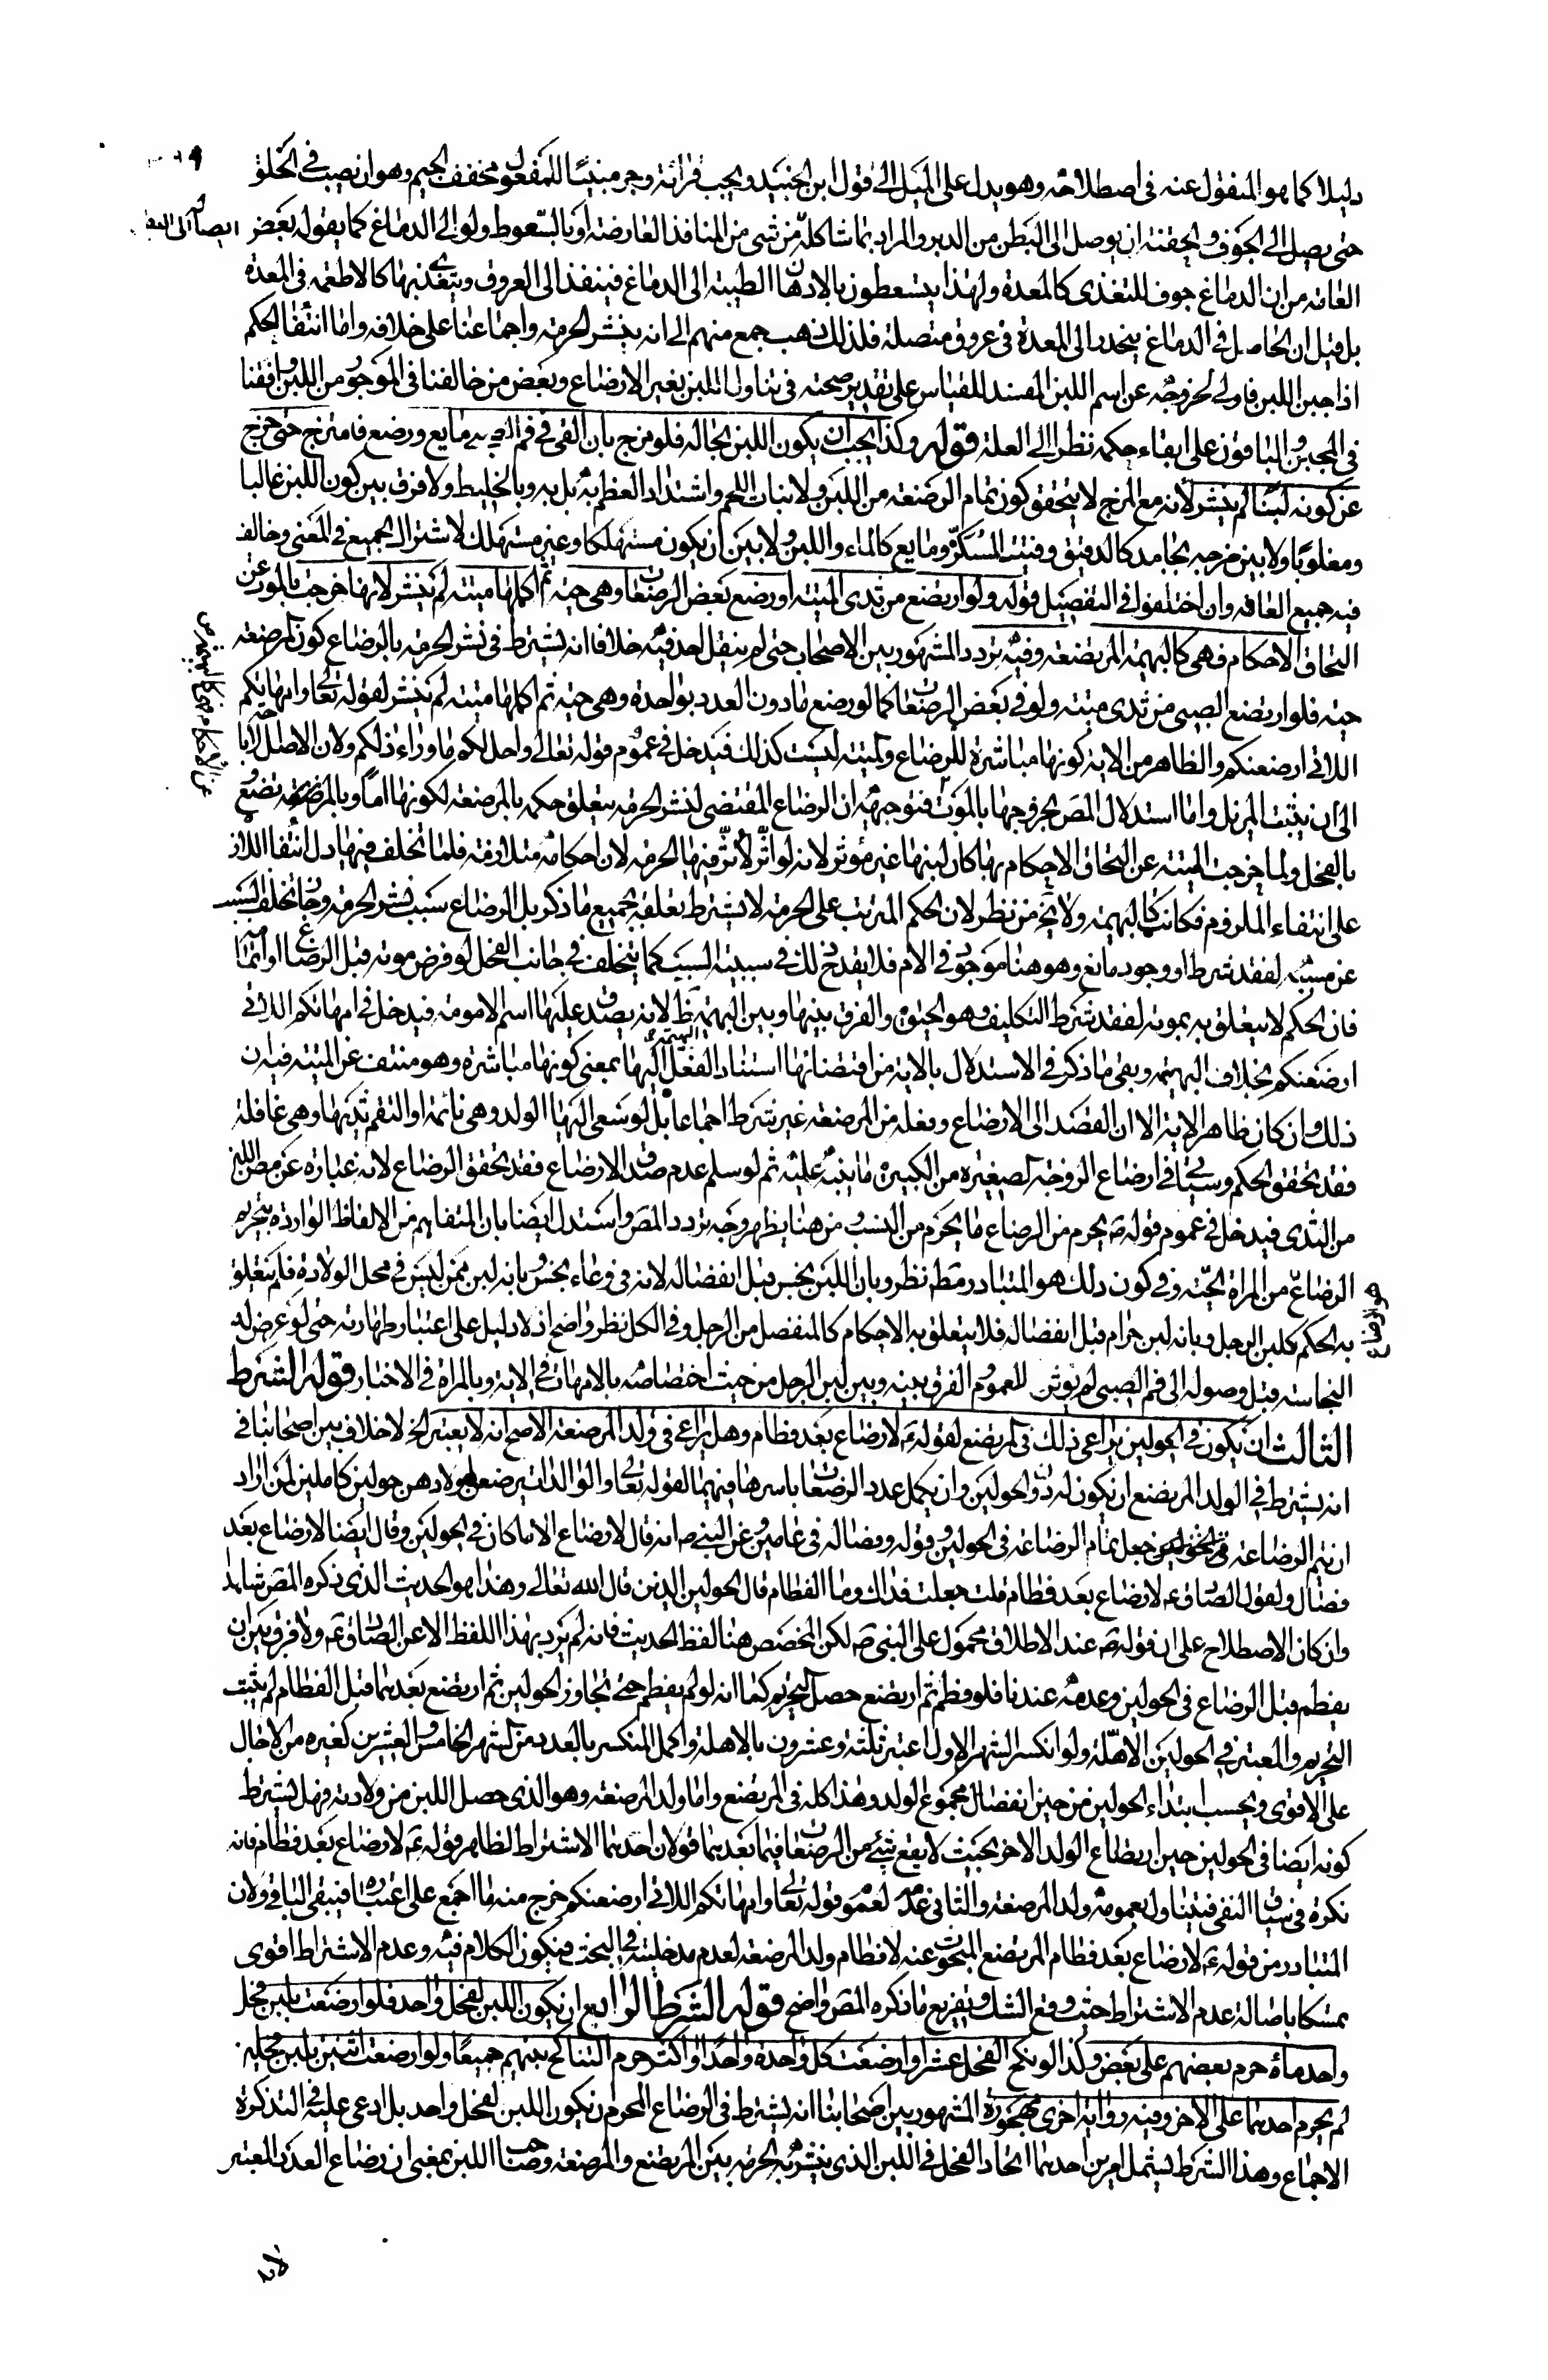 دليلا كما هو المنقول عنه في اصطلاحه وهو يدل على الميل الى قول ابن الجنيد ويجب قرائة وجر مبنيا للمفعول مخفف الجيم وهو ان يصب في الحلق
حتى يصل الى الجوف والحقنة ان يوصل الى البطن من الدبر والمراد بما شاكله من شئ من المنافذ العارضة او بالسعوط ولو الى الدماغ كما يقوله بعض
العامه من ان الدماغ جوف للتغذى كالمعدة ولهذا يستعطون بالادهان الطيبه الى الدماغ فينفذ الى العروق ويتغذى بها كالاطعمه في المعدة
بل قيل ان الحاصل في الدماغ ينحدر الى المعدة في عروق متصلة فلذلك ذهب جمع منهم الى انه ينشر الحرمة واجماعنا على خلافه واما انتفا الحكم
اذا جبن اللبن فاولى لخروجه عن اسم اللبن المفسد للقياس على تقدير صحته في تناول اللبن بغير الارضاع وبعض من خالفنا في الموجور من اللبن وافقنا
في الجبن والباقون على ابقاء حكمه نظرا الى العلة قوله وكذا يجب ان يكون اللبن بحاله فلو مزج بان القى في فم الصبي مايع ورضع فامتزج حتى خرج
عن كونه لبنا لم ينشر لانه مع المزج لا يتحقق كون تمام الرضعة من اللبن ولا نبات اللحم واشتداد العظم به بل به وبالخليط ولا فرق بين كون اللبن غالبا
ومغلوبا ولا بين مزجه بجامد كالدقيق وفتيت السكر ومايع كالماء واللبن ولا بين ان يكون مستهلكا وغير مستهلك لاشتراك الجميع في المعنى وخالف
فيه جميع العامة وان اختلفوا في التفصيل قوله ولو ارتضع من ثدى الميتة او رضع بعض الرضعات وهي حية ثم اكملها ميتة لم ينشر لانها خرجت بالموت عن
التحاق الاحكام فهى كالبهيمة المرتضعة وفيه تردد المشهور بين الاصحاب حتى لم ينقل احد فيه خلافا انه يشترط في نشر الحرمة بالرضاع كون المرضعة
حية فلو ارتضع الصبى من ثدى ميتة ولو في بعض الرضعات كما لو رضع ما دون العدد بواحدة وهي حية ثم اكملها ميتة لم ينشر لقوله تعالى وامهاتكم
اللاتى ارضعنكم والظاهر من الاية كونها مباشرة للرضاع والميتة ليست كذلك فيدخل في عموم قوله تعالى واحل لكم ما وراء ذلكم ولان الاصل الاباحة
الى ان يثبت المزيل واما استدلال المص بخروجها بالموت فتوجيهه ان الرضاع المقتضى لنشر الحرمة يتعلق حكمه بالمرضعة لكونها اما وبالمرتضع
بالفحل ولما خرجت الميتة عن التحاق الاحكام بها كان لبنها غير مؤثر لانه لو اثر لاثر فيها الحرمة لان احكامه متلازمة فلما تخلف فيها دل انتفا اللازم
على انتفاء الملزوم فكانت كالبهيمة ولا يخ من نظر لان الحكم المترتب على الحرمة لا يشترط تعلقه بجميع ما ذكر بل الرضاع سبب نشر الحرمة وجاز تخلف السبب
عن مسببه لفقد شرط او وجود مانع وهو هنا موجود في الام فلا يقدح ذلك في سببية السبب كما يتخلف في جانب الفحل لو فرض موته قبل الرضاع او اتمامه
فان الحكم لا يتعلق به بموته لفقد شرط التكليف وهو الحيوة والفرق بينها وبين البهيمة ظ لانه يصدق عليها اسم الامومة فيدخل في امهاتكم اللاتى
ارضعنكم بخلاف البهيمة وبقى ما ذكر في الاستدلال بالاية من اقتضائها استناد الفعل اليها بمعنى كونها مباشرة وهو منتف عن الميتة فيه ان
ذلك وان كان ظاهر الاية الا ان القصد الى الارضاع وفعله من المرضعة غير شرط اجماعا بل لو سعى اليها الولد وهى نائمة او التقم ثديها وهى غافلة
فقد تحقق الحكم وسياتى في ارضاع الزوجة الصغيرة من الكبيرة ما ينبه عليه ثم لو سلم عدم صدق الارضاع فقد تحقق الرضاع لانه عبارة عن مص اللبن
من الثدى فيدخل في عموم قوله ص يحرم من الرضاع ما يحرم من النسب ومن هنا يظهر وجه تردد المص واستدل ايضا بان المتفاهم من الالفاظ الواردة بتحريم
الرضاع من المراة الحية وفي كون ذلك هو المتبادر مط نظر وبان اللبن نجس قبل انفصاله لانه في وعاء نجس وبانه لبن ممن ليس في محل الولادة فلم يتعلق
به الحكم كلبن الرجل وبانه لبن حرام قبل انفصاله فلا يتعلق به الاحكام كالمنفصل من الرجل وفي الكل نظر واضح اذ لا دليل على اعتبار طهارته حتى لو عرض له
النجاسة قبل وصوله الى فم الصبى لم يؤثر للعموم الفرق بينه وبين لبن الرجل من حيث اختصاصه بالامهات في الاية وبالمراة في الاخبار قوله الشرط
الثالث ان يكون في الحولين يراعى ذلك في المرتضع لقوله ع لا رضاع بعد فطام وهل يراعى في ولد المرضعة الاصح انه لا يعتبر الخ لا خلاف بين اصحابنا في
انه يشترط في الولد المرتضع ان يكون له دون الحولين وان يكمل عدد الرضعات باسرها فيهما لقوله تعالى والوالدات يرضعن اولادهن حولين كاملين لمن اراد
ان يتم الرضاعة جعل تمام الرضاعة في الحولين وقوله وفصاله في عامين وعن النبى ص انه قال لا رضاع الا ما كان في الحولين وقال ايضا لا رضاع بعد
فصال ولقول الصادق ع لا رضاع بعد فطام قلت جعلت فداك وما الفطام قال الحولين الذين قال الله تعالى وهذا هو الحديث الذى ذكره المص شاهدا
وان كان الاصطلاح على ان قوله ص عند الاطلاق محمول على النبى ص لكن المخصص هنا لفظ الحديث فانه لم يرد بهذا اللفظ الا عن الصادق ع ولا فرق بين ان
يفطم قبل الرضاع في الحولين وعدمه عندنا فلو فطم ثم ارتضع حصل التحريم كما انه لو لم يفطم حتى تجاوز الحولين ثم ارتضع بعدهما قبل الفطام لم يثبت
التحريم والمعتبر في الحولين الاهلة ولو انكسر الشهر الاول اعتبر ثلثة وعشرون بالاهلة واكمل المنكسر بالعدد من الشهر الخامس والعشرين كغيره من الاجال
على الاقوى ويحسب ابتداء الحولين من حين انفصال مجموع الولد وهذا كله في المرتضع واما ولد المرضعة وهو الذى حصل اللبن من ولادته فهل يشترط
كونه ايضا في الحولين حين ارتضاع الولد الاخر بحيث لا يقع شئ من الرضعات فيما بعدهما قولان احدهما الاشتراط لظاهر قوله ع لا رضاع بعد فطام فانه
نكرة في سياق النفى فيتناول بعمومه ولد المرضعة والثانى عدمه لعموم قوله تعالى وامهاتكم اللاتى ارضعنكم خرج منه ما اجمع على اعتباره فيبقى الباقى ولان
المتبادر من قوله ع لا رضاع بعد فطام المرتضع المبحوث عنه لا فطام ولد المرضعة لعدم مدخليته في البحث فيكون الكلام فيه وعدم الاشتراط اقوى
تمسكا باصالة عدم الاشتراط حيث وقع الشك وتفريع ما ذكره المص واضح قوله الشرط الرابع ان يكون اللبن لفحل واحد فلو ارضعت بلبن فحل
واحد مائة حرم بعضهم على بعض وكذا لو نكح الفحل عشرا وارضعت كل واحدة واحدا او اكثر حرم التناكح بينهم جميعا ولو ارضعت اثنين بلبن فحلين
لم يحرم احدهما على الاخر وفيه رواية اخرى مهجورة المشهور بين اصحابنا انه يشترط في الرضاع المحرم ان يكون اللبن لفحل واحد بل ادعى عليه في التذكرة
الاجماع وهذا الشرط يشمل امرين احدهما اتحاد الفحل في اللبن الذى ينشر به الحرمة بين المرتضع والمرضعة وصاحب اللبن بمعنى ان رضاع العدد المعتبر
لابد